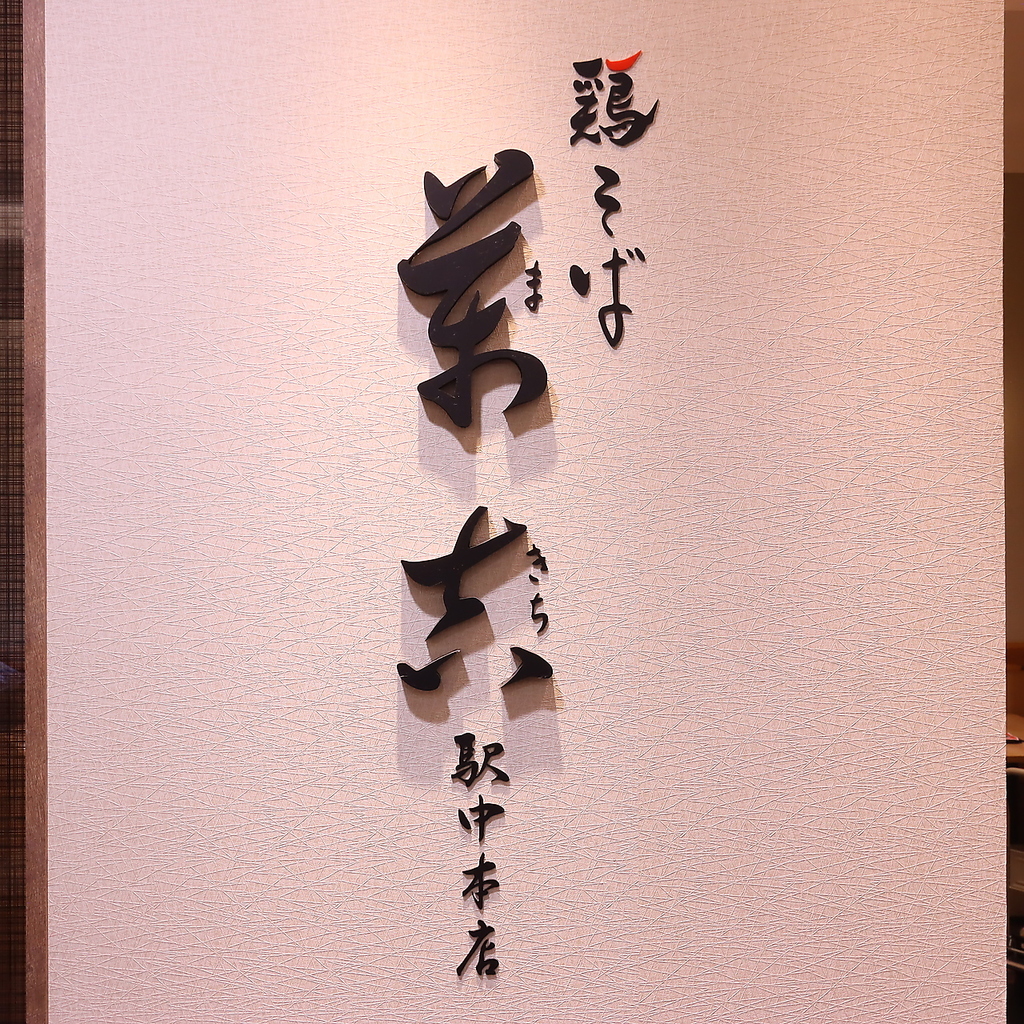 鶏そば
萬吉
まきち
駅中本店